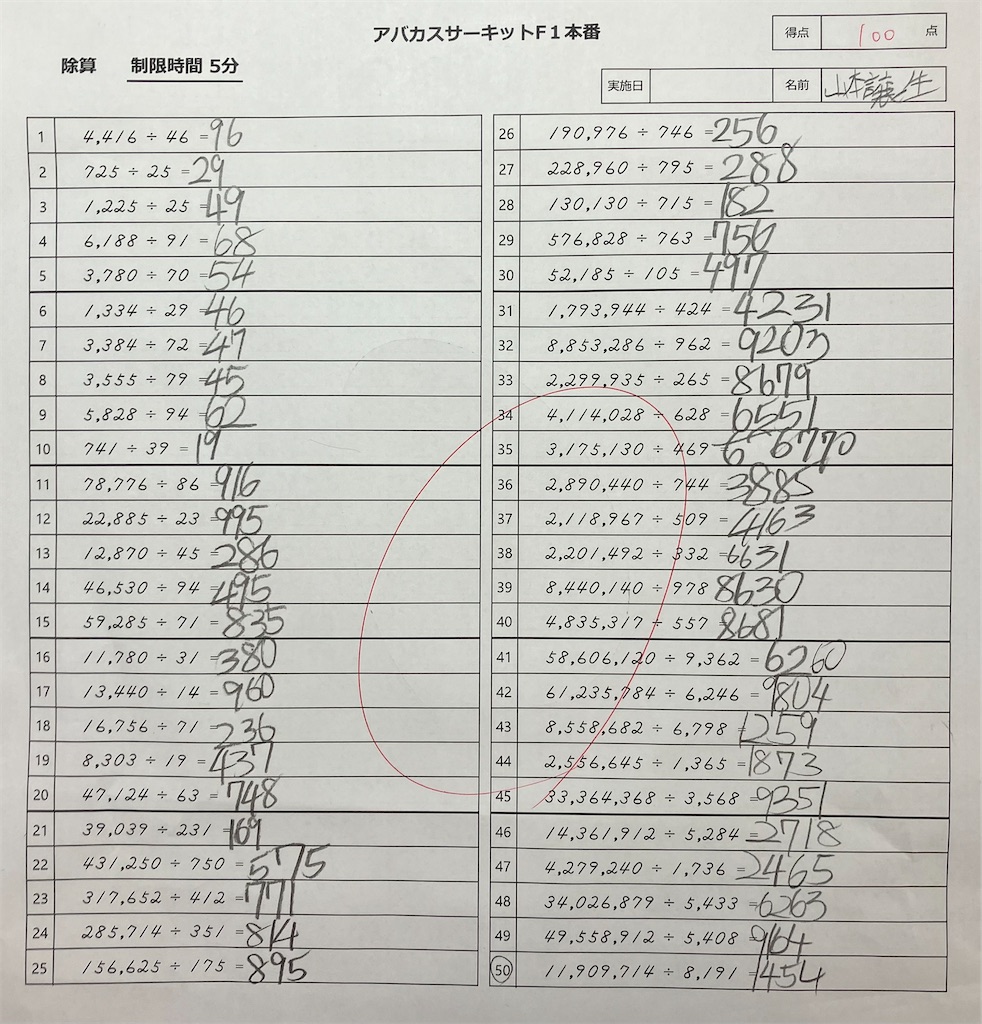 アバカスサーキットF1本番
得点 100 点
除算 制限時間 5分
実施日 名前 山本譲生
1 4,416 ÷ 46 =96
2 725 ÷ 25 =29
3 1,225 ÷ 25 =49
4 6,188 ÷ 91 =68
5 3,780 ÷ 70 =54
6 1,334 ÷ 29 =46
7 3,384 ÷ 72 =47
8 3,555 ÷ 79 =45
9 5,828 ÷ 94 =62
10 741 ÷ 39 =19
11 78,776 ÷ 86 =916
12 22,885 ÷ 23 =995
13 12,870 ÷ 45 =286
14 46,530 ÷ 94 =495
15 59,285 ÷ 71 =835
16 11,780 ÷ 31 =380
17 13,440 ÷ 14 =960
18 16,756 ÷ 71 =236
19 8,303 ÷ 19 =437
20 47,124 ÷ 63 =748
21 39,039 ÷ 231 =169
22 431,250 ÷ 750 =575
23 317,652 ÷ 412 =771
24 285,714 ÷ 351 =814
25 156,625 ÷ 175 =895
26 190,976 ÷ 746 =256
27 228,960 ÷ 795 =288
28 130,130 ÷ 715 =182
29 576,828 ÷ 763 =756
30 52,185 ÷ 105 =497
31 1,793,944 ÷ 424 =4231
32 8,853,286 ÷ 962 =9203
33 2,299,935 ÷ 265 =8679
34 4,114,028 ÷ 628 =6551
35 3,175,130 ÷ 469 =6 6770
36 2,890,440 ÷ 744 =3885
37 2,118,967 ÷ 509 =4163
38 2,201,492 ÷ 332 =6631
39 8,440,140 ÷ 978 =8630
40 4,835,317 ÷ 557 =8681
41 58,606,120 ÷ 9,362 =6260
42 61,235,784 ÷ 6,246 =9804
43 8,558,682 ÷ 6,798 =1259
44 2,556,645 ÷ 1,365 =1873
45 33,364,368 ÷ 3,568 =9351
46 14,361,912 ÷ 5,284 =2718
47 4,279,240 ÷ 1,736 =2465
48 34,026,879 ÷ 5,433 =6263
49 49,558,912 ÷ 5,408 =9164
50 11,909,714 ÷ 8,191 =1454